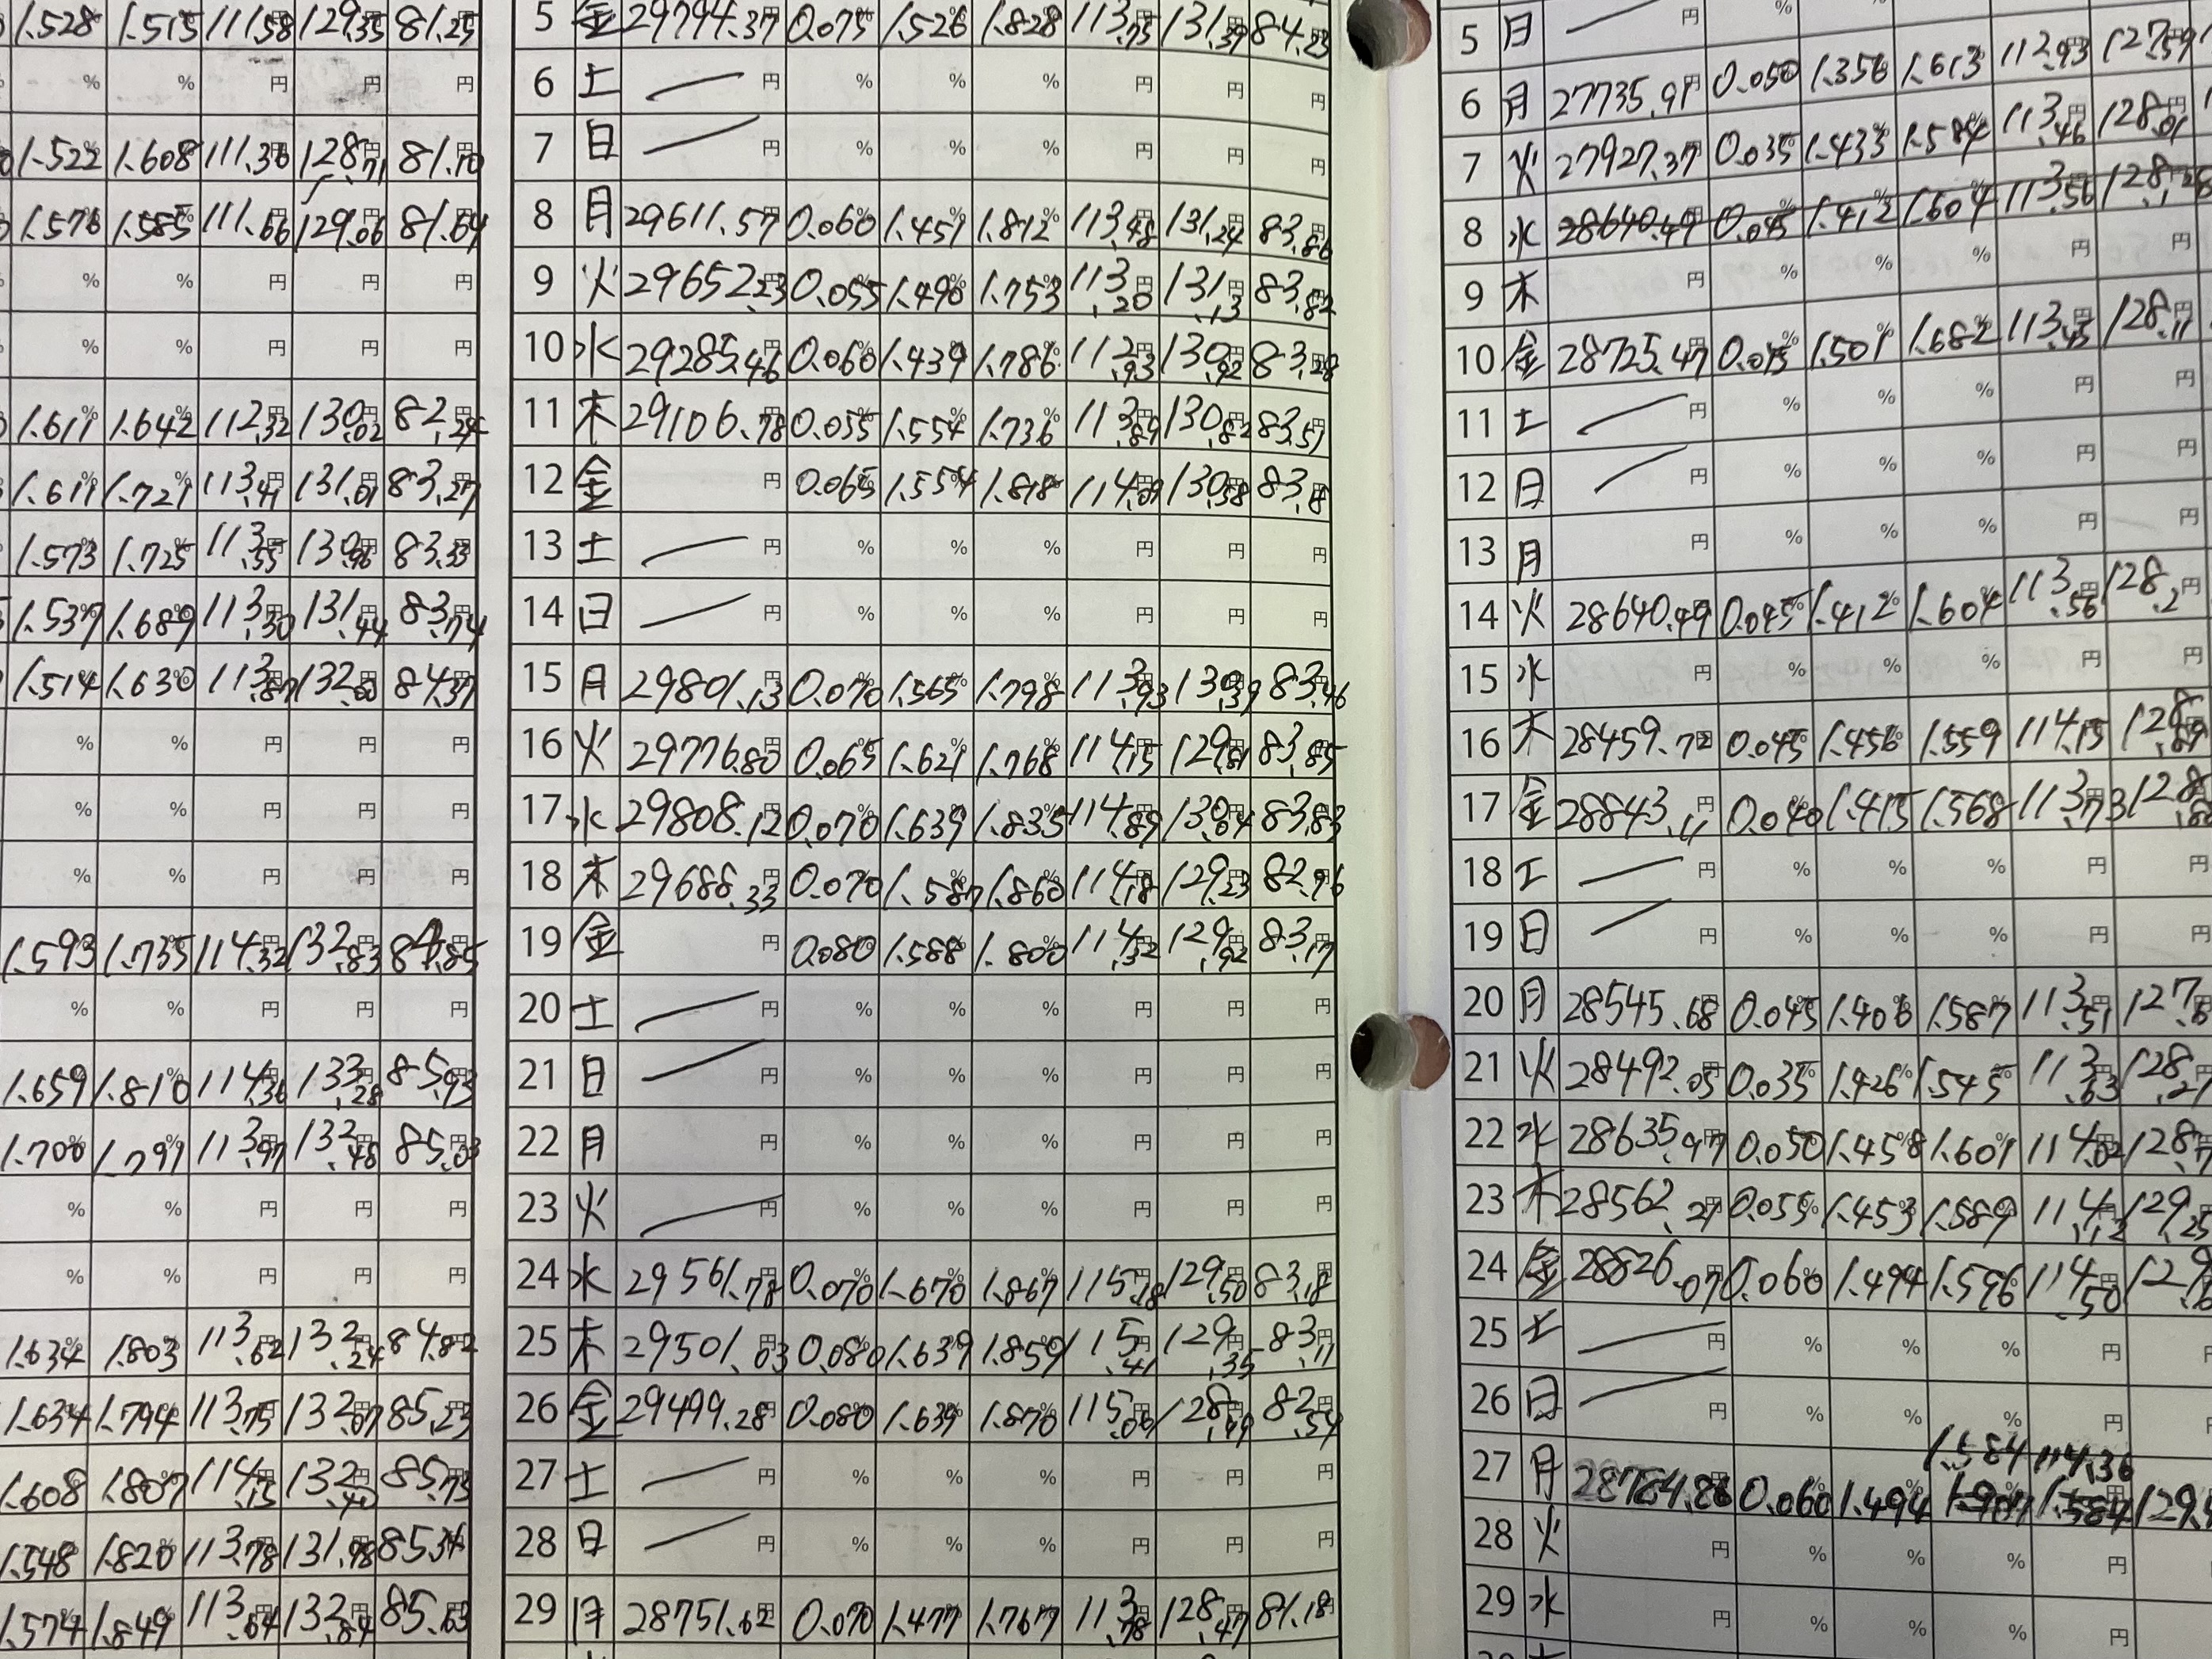 1.528 1.515 111.58 129.35 81.25
% % 円 円 円
1.522 1.608 111.36 128.71 81.10
1.576 1.585 111.66 129.06 81.64
% % 円 円 円
% % 円 円 円
1.611 1.642 112.32 130.02 82.24
1.611 1.721 113.41 131.01 83.27
1.573 1.725 113.55 130.96 83.33
1.537 1.689 113.30 131.44 83.74
1.514 1.630 113.87 132.00 84.37
% % 円 円 円
% % 円 円 円
% % 円 円 円
1.593 1.735 114.32 132.83 84.85
% % 円 円 円
1.659 1.810 114.36 133.28 85.93
1.700 1.791 113.97 132.48 85.03
% % 円 円 円
% % 円 円 円
1.634 1.803 113.62 132.24 84.82
1.634 1.794 113.75 132.07 85.23
1.608 1.807 114.15 132.40 85.75
1.548 1.820 113.78 131.98 85.34
1.574 1.849 113.64 132.84 85.63
5 金 29794.37 0.075 1.526 1.828 113.75 131.39 84.23
6 土 円 % % % 円 円 円
7 日 円 % % % 円 円 円
8 月 29611.57 0.060 1.451 1.812 113.48 131.24 83.86
9 火 29652.23 0.055 1.490 1.753 113.20 131.13 83.82
10 水 29285.46 0.060 1.439 1.786 112.93 130.92 83.28
11 木 29106.78 0.055 1.554 1.736 113.89 130.82 83.51
12 金 円 0.065 1.554 1.818 114.09 130.58 83.18
13 土 円 % % % 円 円 円
14 日 円 % % % 円 円 円
15 月 29801.13 0.070 1.565 1.798 113.93 130.39 83.46
16 火 29776.80 0.065 1.621 1.768 114.15 129.81 83.85
17 水 29808.12 0.070 1.639 1.835 114.89 130.04 83.83
18 木 29688.33 0.070 1.587 1.860 114.18 129.23 82.96
19 金 円 0.080 1.588 1.800 114.32 129.92 83.17
20 土 円 % % % 円 円 円
21 日 円 % % % 円 円 円
22 月 円 % % % 円 円 円
23 火 円 % % % 円 円 円
24 水 29561.78 0.070 1.670 1.867 115.18 129.50 83.18
25 木 29501.03 0.080 1.639 1.859 115.41 129.35 83.11
26 金 29499.28 0.080 1.639 1.870 115.06 128.99 82.54
27 土 円 % % % 円 円 円
28 日 円 % % % 円 円 円
29 月 28751.62 0.070 1.477 1.767 113.78 128.47 81.18
5 日 円 %
6 月 27735.91 0.050 1.356 1.613 112.93 127.59
7 火 27927.37 0.035 1.433 1.584 113.46 128.01
8 水 28640.49 0.045 1.412 1.604 113.56 128.1
9 木 円 % % % 円 円
10 金 28725.47 0.045 1.501 1.682 113.45 128.11
11 土 円 % % % 円 円
12 日 円 % % % 円 円
13 月 円 % % % 円 円
14 火 28640.49 0.045 1.412 1.604 113.56 128.2
15 水 円 % % % 円 円
16 木 28459.72 0.045 1.456 1.559 114.15 128.89
17 金 28843.11 0.040 1.415 1.568 113.73 128.80
18 土 円 % % % 円 円
19 日 円 % % % 円 円
20 月 28545.68 0.045 1.406 1.587 113.51 127.6
21 火 28492.05 0.035 1.426 1.545 113.63 128.21
22 水 28635.97 0.050 1.458 1.601 114.02 128.7
23 木 28562.21 0.055 1.453 1.589 114.12 129.25
24 金 28826.07 0.060 1.494 1.596 114.50 129.6
25 土 円 % % % 円
26 日 円 % % % 円
1.584 114.36
27 月 28784.86 0.060 1.494 1.584 129.
28 火 円 % % % 円
29 水 円 % % % 円